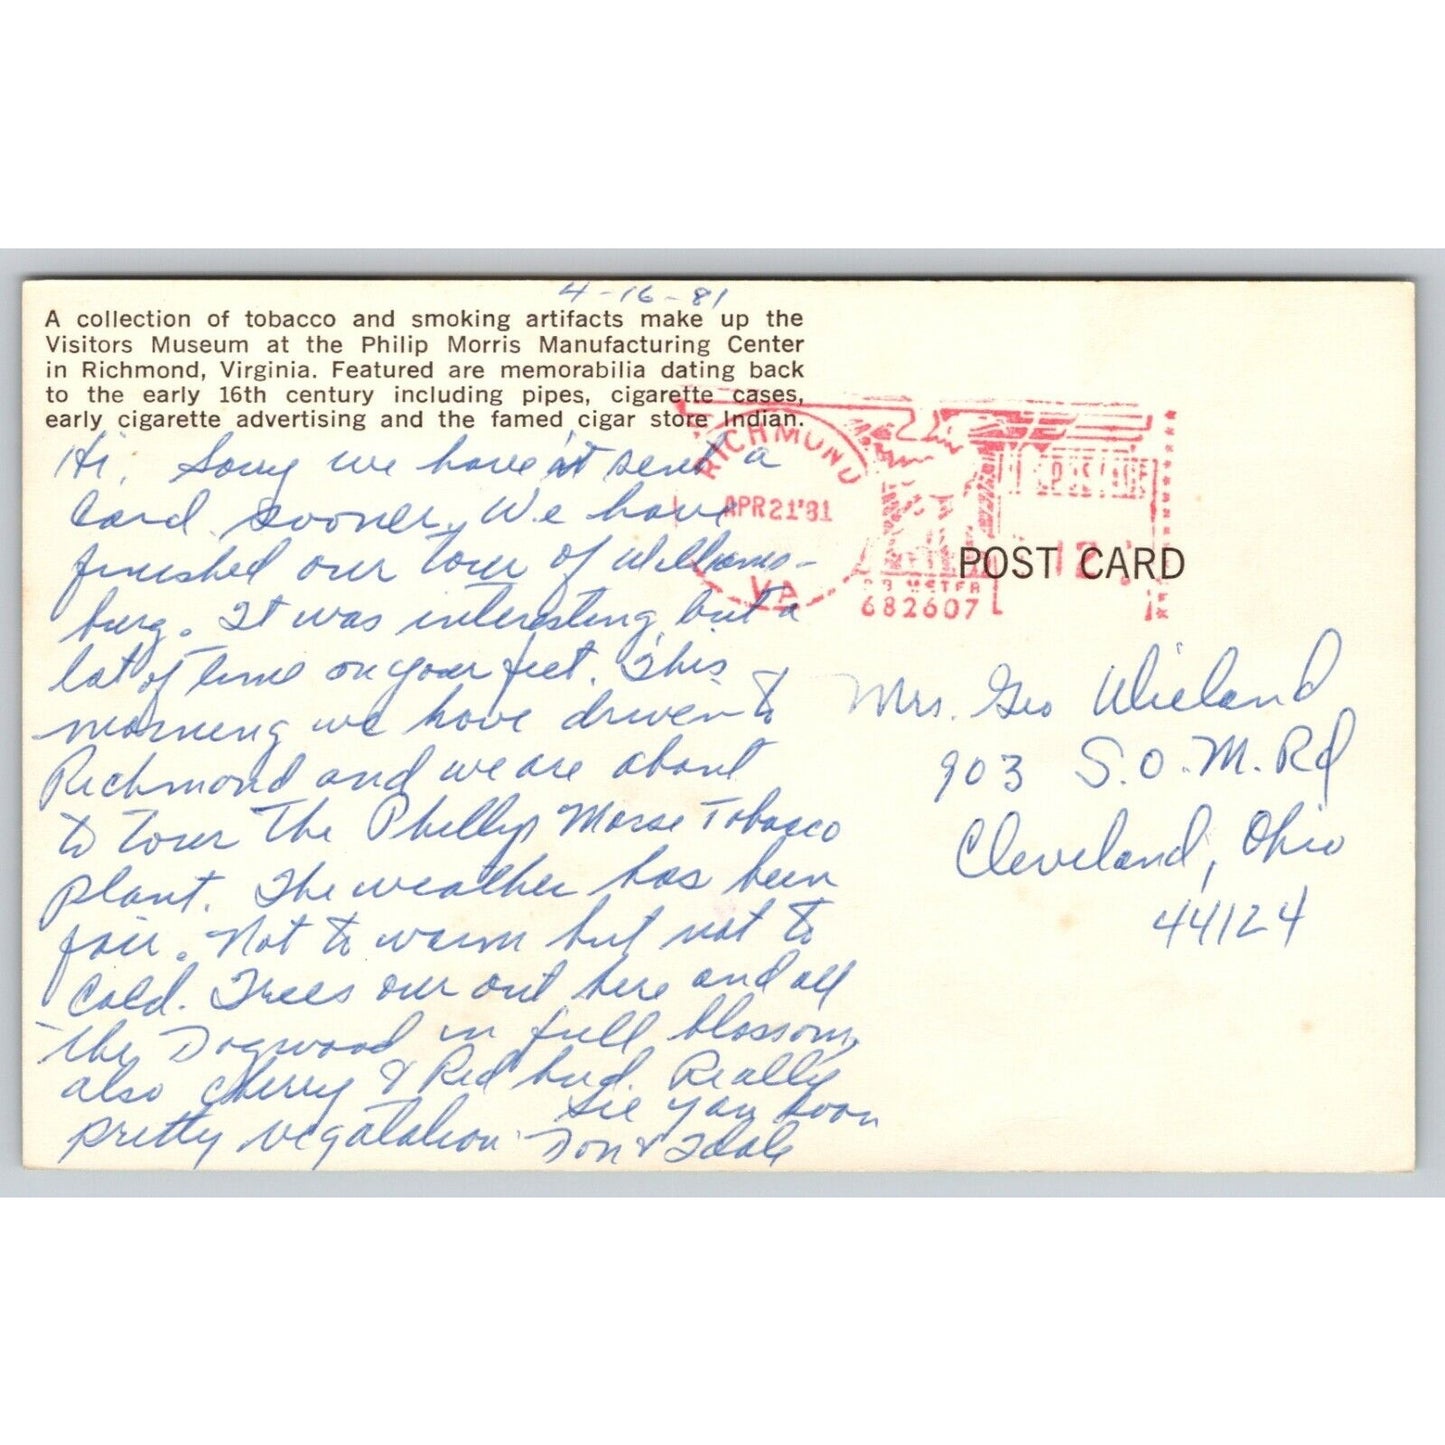 4-16-81
A collection of tobacco and smoking artifacts make up the
Visitors Museum at the Philip Morris Manufacturing Center
in Richmond, Virginia. Featured are memorabilia dating back
to the early 16th century including pipes, cigarette cases,
early cigarette advertising and the famed cigar store Indian.
Hi, Sorry we haven't sent a
Card sooner, We have
finished our tour of Williams-
burg. It was interesting but a
lot of time on your feet. This
morning we have driven to
Richmond and we are about
to tour The Phillip Morse Tobacco
plant. The weather has been
fair. Not to warm but not to
Cold. Trees our out here and all
the Dogwood in full blossom,
also cherry & Red bud. Really
pretty vegatation. See you soon
Don &
RICHMOND
APR21'81
VA
U.S.POSTAGE
12
P.B. METER
682607
POST CARD
Mrs. Geo Wieland
903 S.O.M. Rd
Cleveland, Ohio
44124